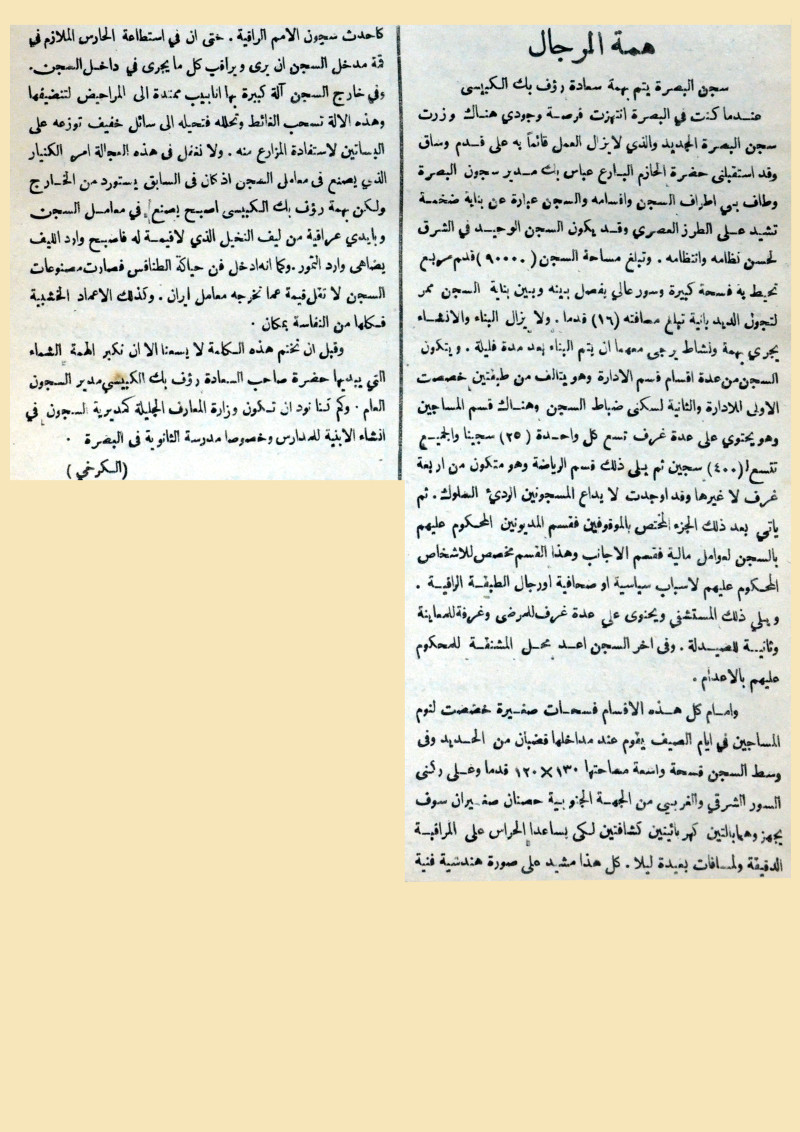 همة الرجال
سجن البصرة يتم بهمة سعادة رؤف بك الكبيسى
عندما كنت في البصرة انتهزت فرصة وجودي هناك وزرت
سجن البصرة الجديد والذي لا يزال العمل قائماً به على قدم وساق
وقد استقبلنى حضرة الحازم البارع عباس بك مدير سجون البصرة
وطاف بي اطراف السجن واقسامه والسجن عبارة عن بناية ضخمة
تشيد على الطرز العصري وقد يكون السجن الوحيد في الشرق
لحسن نظامه وانتظامه . وتبلغ مساحة السجن (٩٠٠٠٠) قدم مربع
تحيط به فسحة كبيرة وسور عالي يفصل بينه وبين بناية السجن ممر
لتجول الديدبانية تبلغ مسافته (١٦) قدما . ولا يزال البناء والانشاء
يجري بهمة ونشاط يرجى معهما ان يتم البناء بعد مدة قليلة . ويتكون
السجن من عدة اقسام قسم الادارة وهو يتالف من طبقتين خصصت
الاولى للادارة والثانية لسكنى ضباط السجن وهناك قسم المساجين
وهو يحتوي على عدة غرف تسع كل واحدة (٢٥) سجينا والجميع
تتسع ل(٤٠٠) سجين ثم يلى ذلك قسم الرياضة وهو متكون من اربعة
غرف لا غيرها وقد اوجدت لايداع المسجونين الرديئ السلوك . ثم
ياتي بعد ذلك الجزء المختص بالموقوفين فقسم المديونين المحكوم عليهم
بالسجن لعوامل مالية فقسم الاجانب وهذا القسم مخصص للاشخاص
المحكوم عليهم لاسباب سياسية او صحافية اورجال الطبقة الراقية .
ويلي ذلك المستشفى ويحتوى على عدة غرف للمرضى وغرفة للمعاينة
وثانية للصيدلة . وفى اخر السجن اعد محل المشنقة للمحكوم
عليهم بالاعدام .
وامام كل هذه الاقسام فسحات صغيرة خصصت لنوم
المساجين في ايام الصيف يقوم عند مداخلها قضبان من الحديد وفى
وسط السجن فسحة واسعة مساحتها ١٣٠×١٢٠ قدما وعلى ركنى
السور الشرقي والغربي من الجهة الجنوبية حصنان صغيران سوف
يجهز وهما بالتين كهربائيتين كشافتين لكى يساعدا الحراس على المراقبة
الدقيقة ولمسافات بعيدة ليلا . كل هذا مشيد على صورة هندسية فنية
كاحدث سجون الامم الراقية . حتى ان في استطاعة الحارس الملازم في
قمة مدخل السجن ان يرى ويراقب كل ما يجرى في داخل السجن .
وفي خارج السجن آلة كبيرة بها انابيب ممتدة الى المراحيض لتنضيفها
وهذه الالة تسحب الغائط وتحلله فتحيله الى سائل خفيف توزعه على
البساتين لاستفادة المزارع منه . ولا نغفل فى هذه العجالة امر الكنبار
الذي يصنع فى معامل السجن اذ كان فى السابق يستورد من الخارج
ولكن بهمة رؤف بك الكبيسى اصبح يصنع في معامل السجن
وبايدي عراقية من ليف النخيل الذي لاقيمة له فاصبح وارد الليف
يضاهى وارد التمور . وكما انه ادخل فن حياكة الطنافس فصارت مصنوعات
السجن لا تقل قيمة عما تخرجه معامل ايران . وكذلك الاعمال الخشبية
فكلها من النفاسة بمكان .
وقبل ان نختم هذه الكلمة لا يسعنا الا ان نكبر الهمة الشماء
التي يبديها حضرة صاحب السعادة رؤف بك الكبيسي مدير السجون
العام . وكم كنا نود ان تكون وزارة المعارف الجليلة كمديرية السجون في
انشاء الابنية للمدارس وخصوصا مدرسة الثانوية فى البصرة .
(الكرخي)